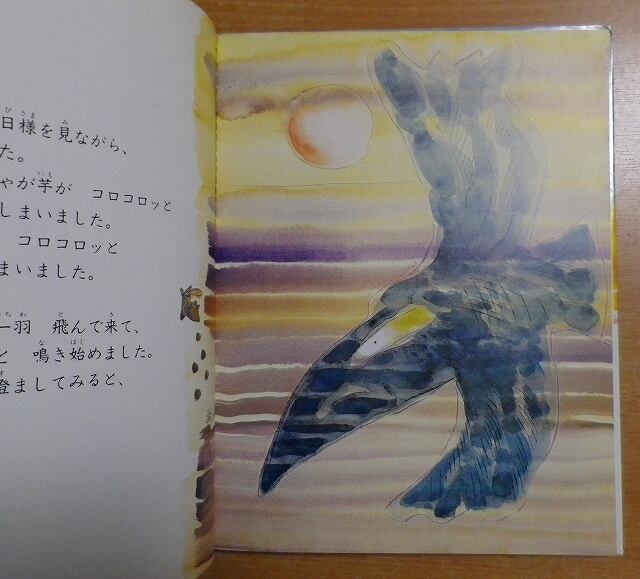 日様を見ながら、
た。
ゃが芋が コロコロッと
しまいました。
コロコロッと
まいました。
一羽 飛んで来て、
と 鳴き始めました。
澄ましてみると、